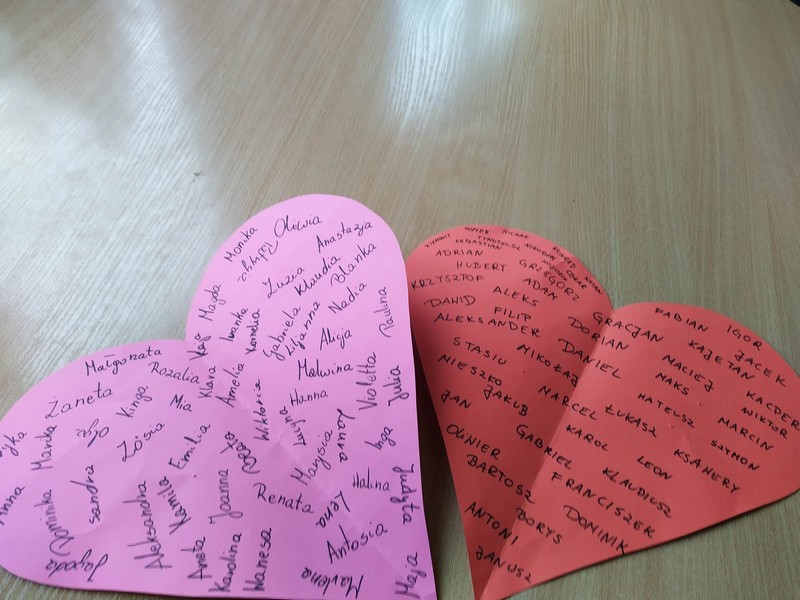 Monika
Oliwia
Anastazja
Zuzia
Klaudia
Blanka
Magda
Iwanka
Kornelia
Gabriela
Nadia
Paulina
Alicja
Małgorzata
Rozalia
Klara
Kaja
Amelia
Malwina
Violetta
Julia
Żaneta
Kinga
Mia
Wiktoria
Hanna
Olga
Zosia
Emilia
Marysia
Laura
Inga
Marika
Anna
Dominika
sandra
Aleksandra
Kamila
Joanna
Renata
Lena
Halina
Judyta
Jagoda
Aneta
Karolina
Wanesa
Antosia
Marlena
Maja
TYMOTEUSZ
NIKODEM
KONRAD
SEBASTIAN
ADRIAN
GRZEGORZ
HUBERT
ADAM
KRZYSZTOF
ALEKS
DAWID
FILIP
GRACJAN
FABIAN
IGOR
ALEKSANDER
DORIAN
KAJETAN
JACEK
STASIU
MIKOŁAJ
DANIEL
MACIEJ
KACPER
MIESZKO
JAKUB
MAKS
WIKTOR
JAN
MARCEL
ŁUKASZ
MATEUSZ
MARCIN
OLIWIER
GABRIEL
KAROL
LEON
KSAWERY
SZYMON
BARTOSZ
FRANCISZEK
KLAUDIUSZ
ANTONI
BORYS
DOMINIK
JANUSZ